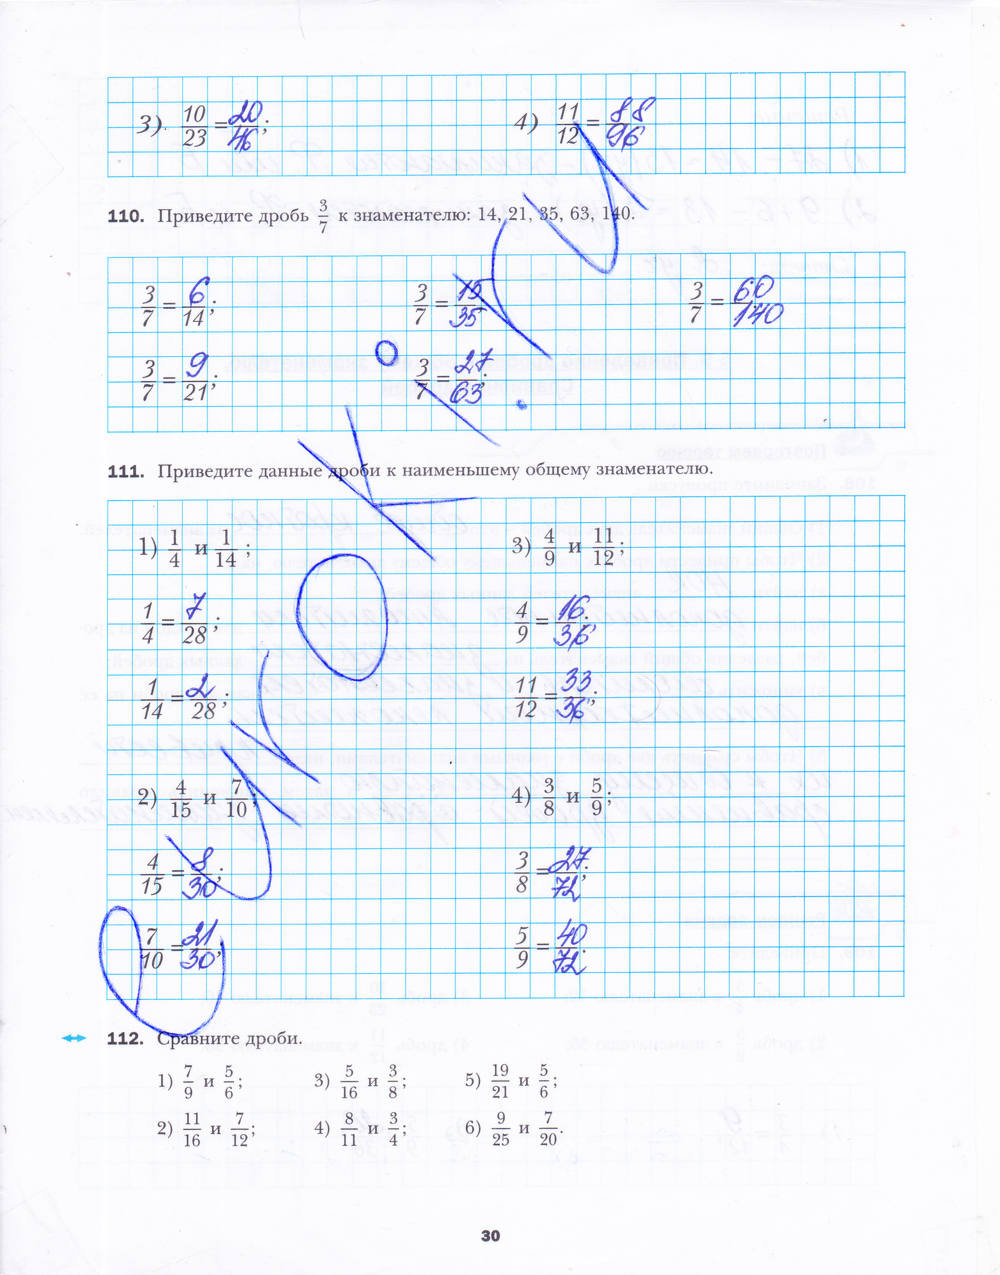 3) 10/23 = 20/46; 4) 11/12 = 88/96
110. Приведите дробь 3/7 к знаменателю: 14, 21, 35, 63, 140.
3/7 = 6/14; 3/7 = 15/35 3/7 = 60/140
3/7 = 9/21; 3/7 = 27/63;
111. Приведите данные дроби к наименьшему общему знаменателю.
1) 1/4 и 1/14; 3) 4/9 и 11/12;
1/4 = 7/28; 4/9 = 16/36;
1/14 = 2/28; 11/12 = 33/36;
2) 4/15 и 7/10; 4) 3/8 и 5/9;
4/15 = 8/30; 3/8 = 27/72;
7/10 = 21/30; 5/9 = 40/72.
112. Сравните дроби.
1) 7/9 и 5/6; 3) 5/16 и 3/8; 5) 19/21 и 5/6;
2) 11/16 и 7/12; 4) 8/11 и 3/4; 6) 9/25 и 7/20.
30